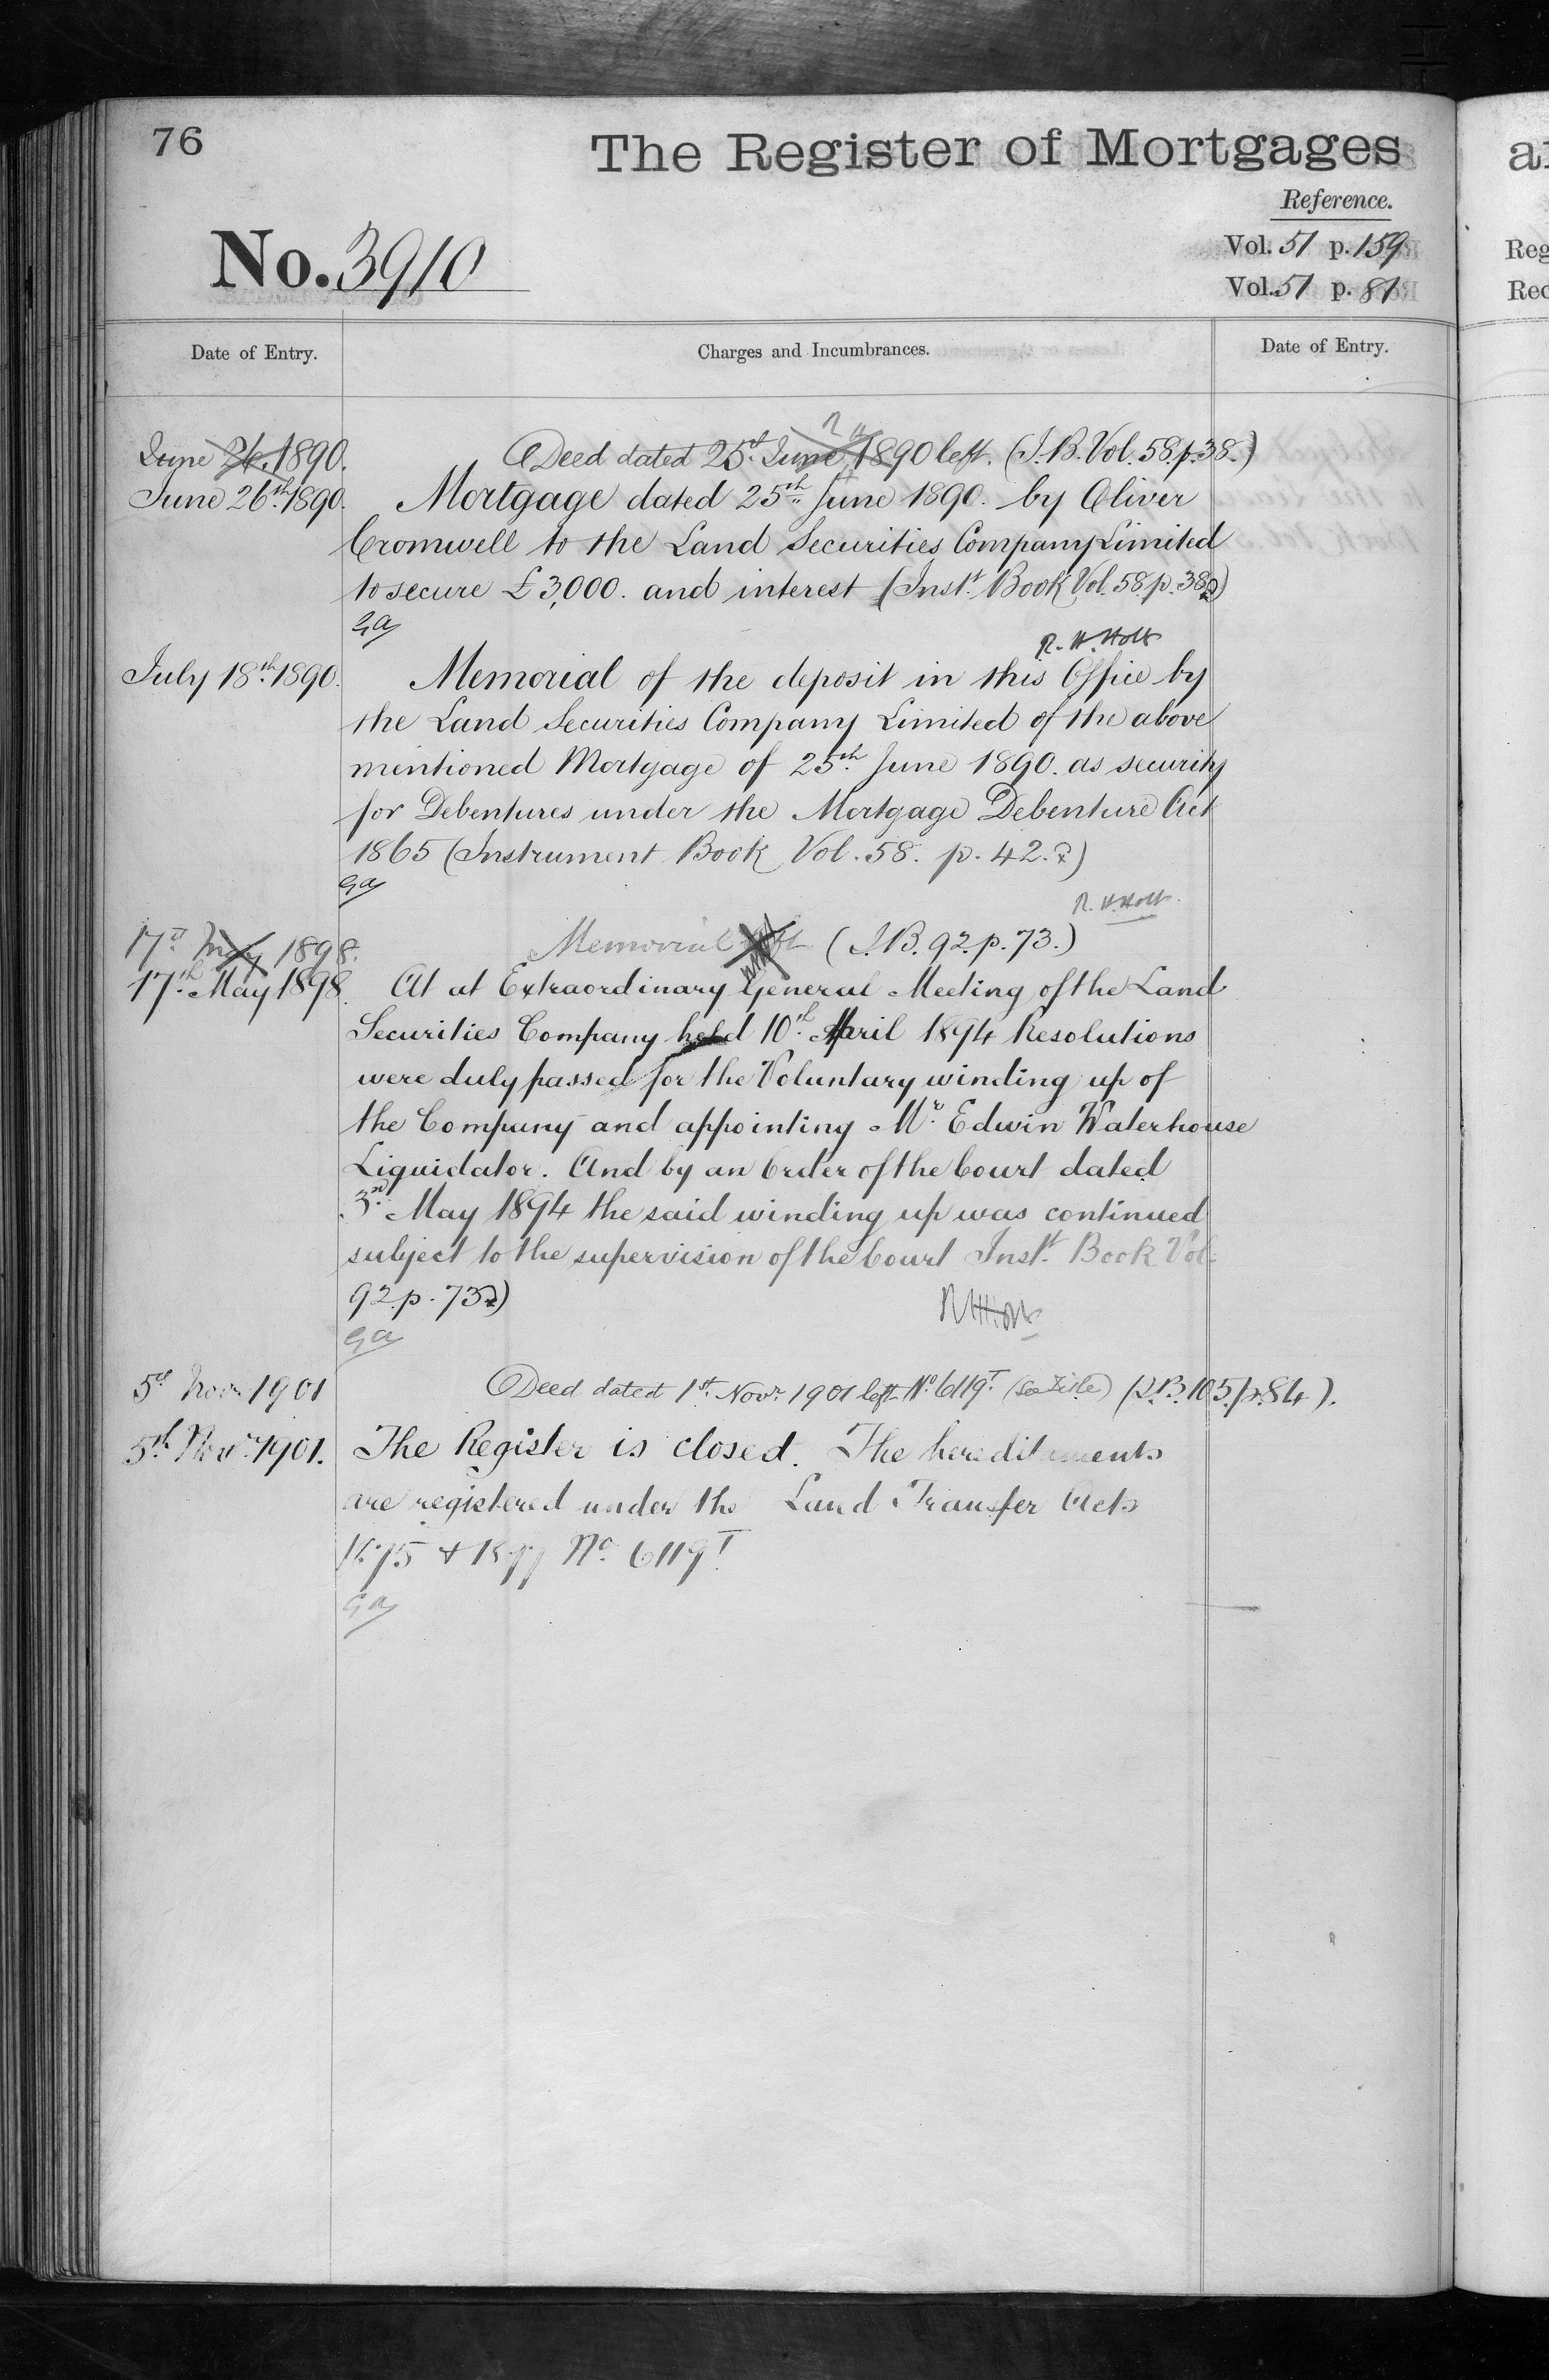 76
The Register of Mortgages
Reference.
No. 3910
Vol. 51 p. 159
Vol. 51 p. 81
Date of Entry.
Charges and Incumbrances.
Date of Entry.
June 26. 1890. Deed dated 25th June 1890 left. (I.B. Vol. 58. p. 38.)
June 26th 1890. Mortgage dated 25th June 1890. by Oliver
Cromwell to the Land Securities Company Limited
to secure £3,000. and interest (Inst. Book Vol. 58. p. 38)
R. H. Holt
July 18th 1890. Memorial of the deposit in this Office by
the Land Securities Company Limited of the above
mentioned Mortgage of 25th June 1890. as security
for Debentures under the Mortgage Debenture Act
1865 (Instrument Book Vol. 58. p. 42.)
R. H. Holt
17th May 1898. Memorial left (I.B. 92. p. 73.)
17th May 1898. At at Extraordinary General Meeting of the Land
Securities Company held 10th April 1894 Resolutions
were duly passed for the Voluntary winding up of
the Company and appointing Mr. Edwin Waterhouse
Liquidator. And by an Order of the Court dated
3rd May 1894 the said winding up was continued
subject to the supervision of the Court Inst. Book Vol.
92. p. 73)
5th Nov 1901 Deed dated 1st Novr. 1901 left No. 6119T (See Title) (I.B. 105. p. 84).
5th Novr. 1901. The Register is closed. The hereditaments
are registered under the Land Transfer Acts
1875 & 1897 No. 6119T
a
Reg
Rec